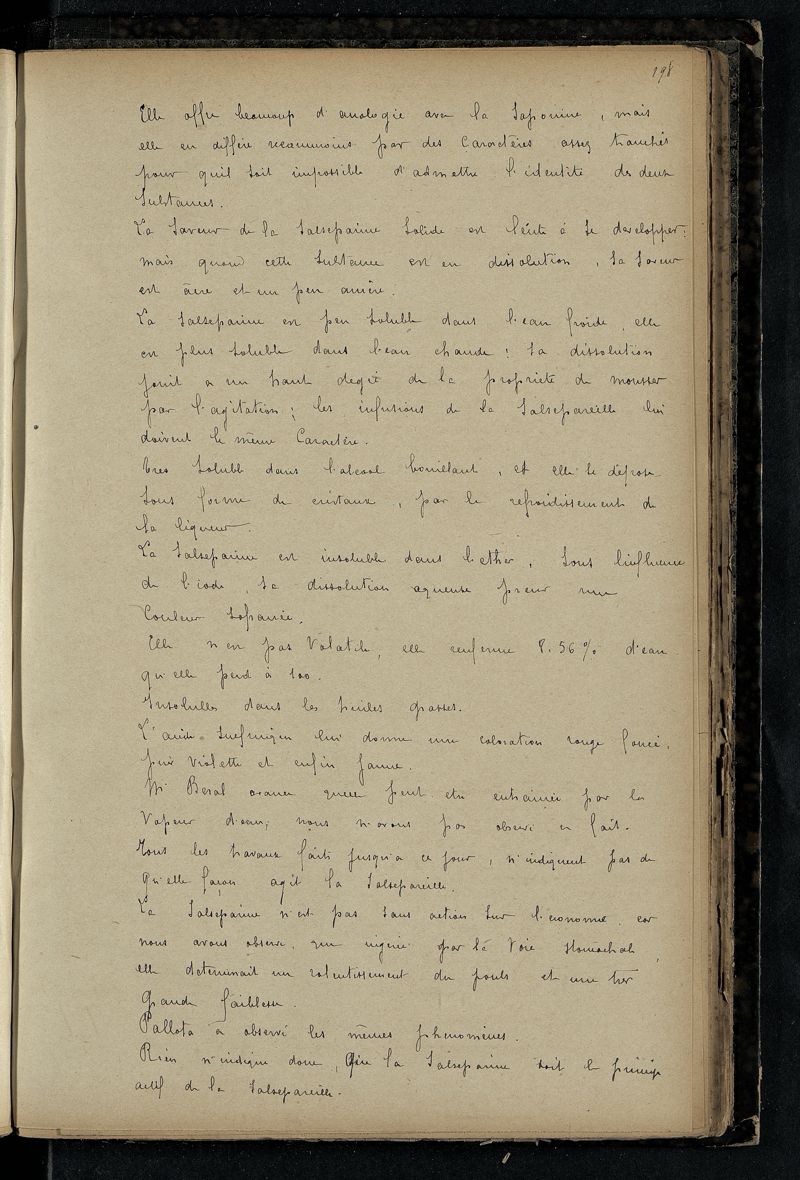 198
Elle offre beaucoup d'analogie avec la Saponine, mais
elle en diffère néanmoins par des Caractères assez tranchés
pour quil soit impossible d'admettre l'identité des deux
Substances.
La Saveur de la Salseparine Solide est lente à Se developper;
mais quand cette Substance est en dissolution, Sa Saveur
est âcre et un peu amère.
La Salseparine est peu Soluble dans l'eau froide, elle
est plus Soluble dans l'eau chaude; Sa dissolution
jouit a un haut degré de la propriété de mousser
par l'agitation; les infusions de la Salsepareille lui
doivent le même Caractère.
très Soluble dans l'alcool bouillant, et elle Se dépose
Sous forme de cristaux, par le refroidissement de
la liqueur.
La Salseparine est insoluble dans l'ether, Sous l'influence
de l'iode, Sa dissolution aqueuse prend une
Couleur Safranée.
Elle n'est pas Volatile, elle renferme 8.56% d'eau
qu'elle perd à 100.
Insolubles dans les huiles grasses.
L'acide Sulfurique lui donne une coloration rouge foncé,
puis Violette et enfin Jaune.
Mr Beral avance quelle peut etre entrainée par la
Vapeur d'eau; nous n'avons pas observé ce fait.
Tous les travaux faits Jusqu'a ce jour, n'indiquent pas de
Qu'elle façon agit la Salsepareille.
La Salseparine n'est pas Sans action Sur l'économie, car
nous avons observé, que ingérée par la Voie Stomachale,
elle determinait un ralentissement du pouls et une très
Grande faiblesse.
Pallota a observé les mêmes phénomènes.
Rien n'indique donc, Que la Salseparine soit le principe
actif de la Salsepareille.